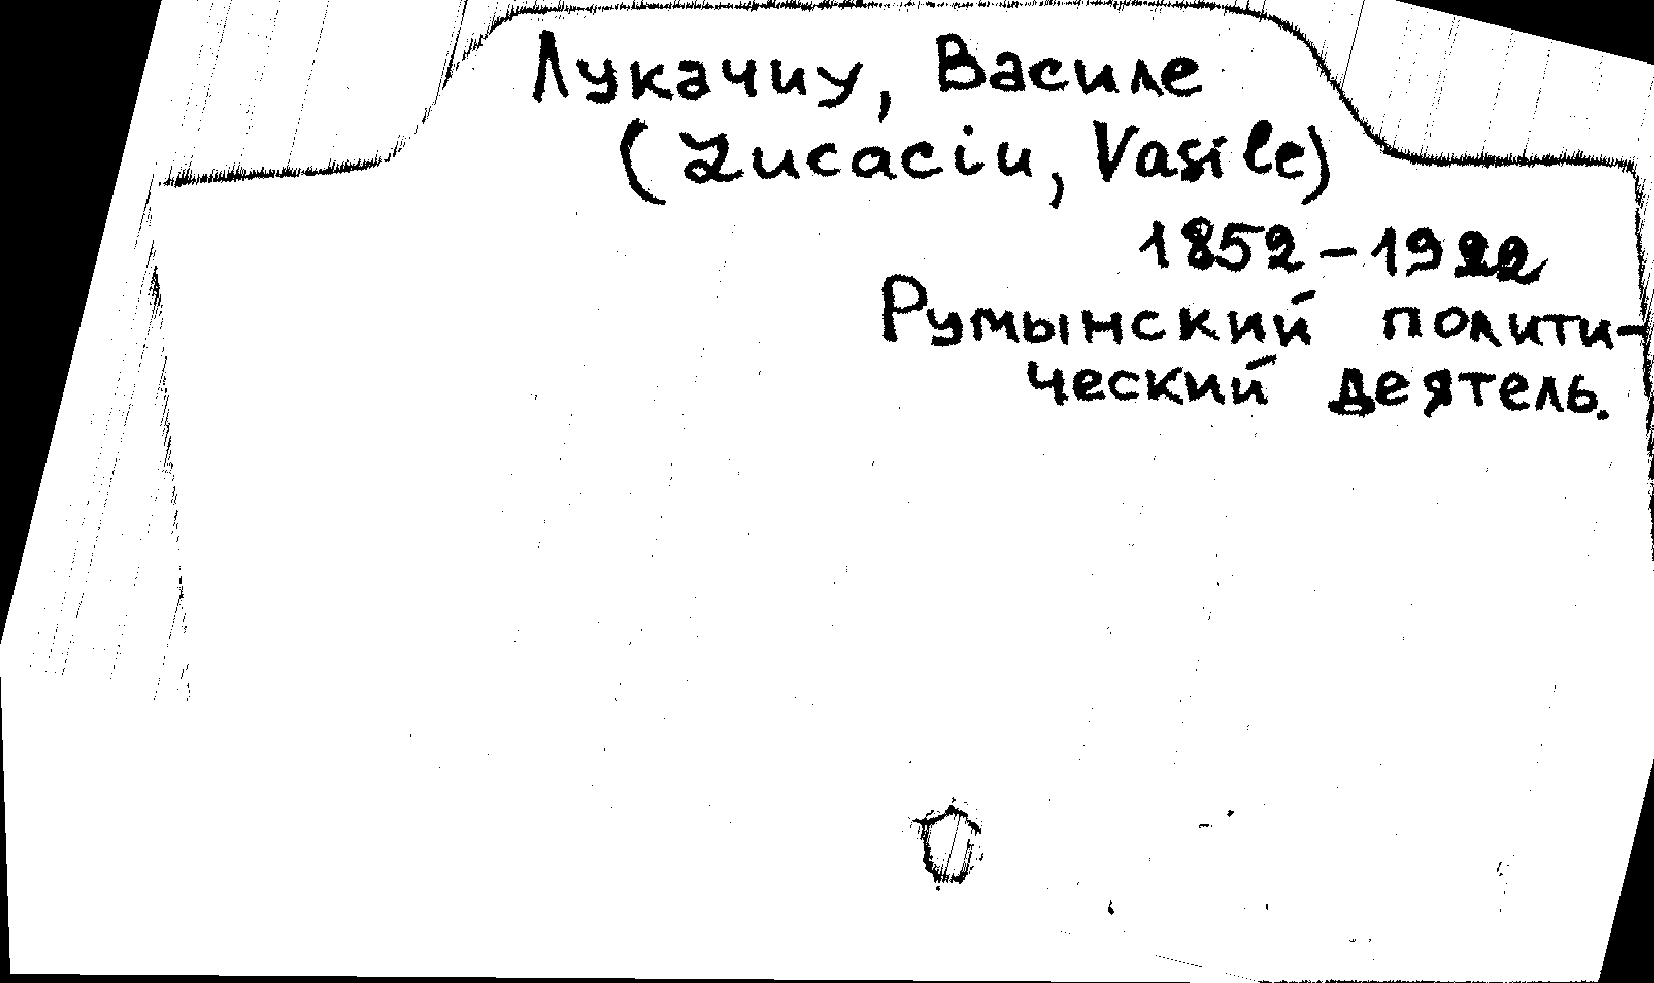 Лукачиу, Василе
(Lucaciu, Vasile)
1852-1922
Румынский полити-
ческий деятель.